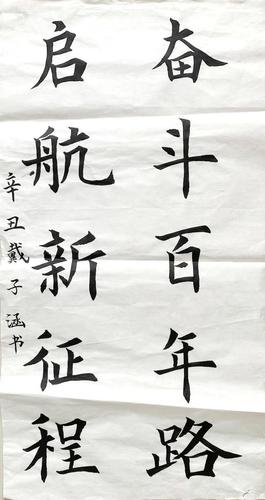 奋斗百年路
启航新征程
辛丑戴子涵书